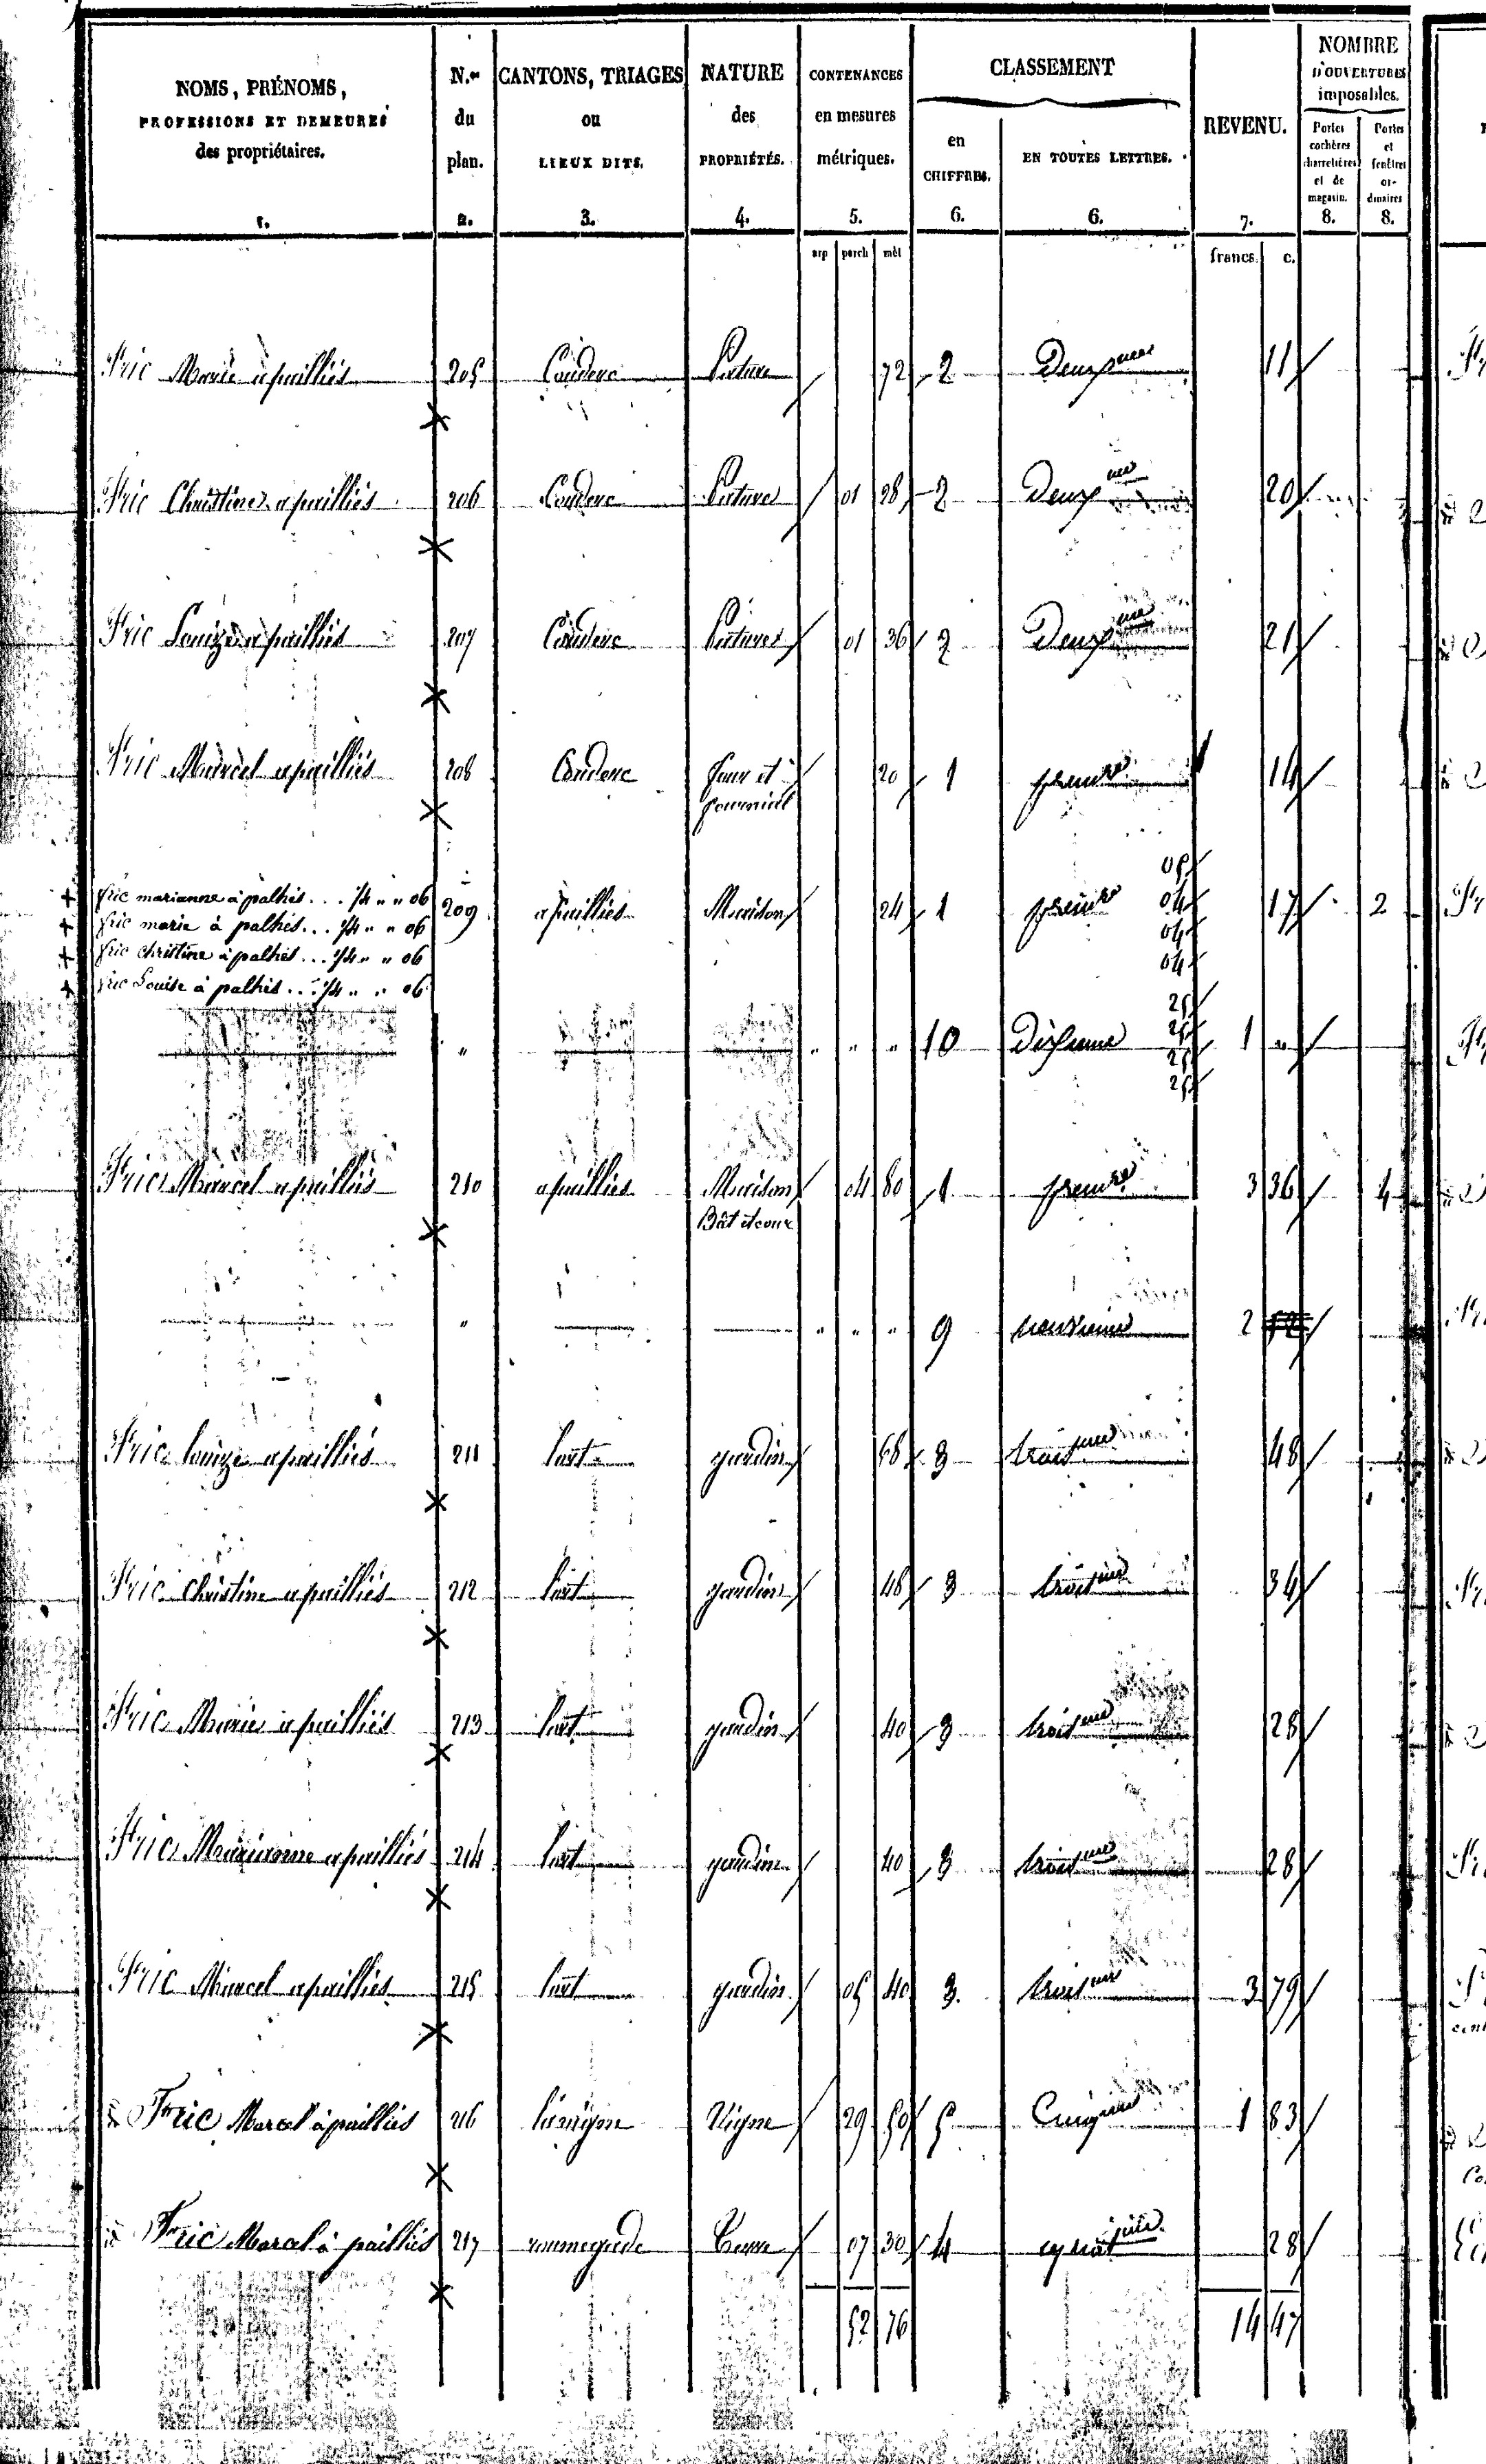 NOMS, PRÉNOMS, PROFESSIONS ET DEMEURES des propriétaires. 1.
N.os du plan. 2.
CANTONS, TRIAGES ou LIEUX DITS. 3.
NATURE des PROPRIÉTÉS. 4.
CONTENANCES en mesures métriques. 5.
CLASSEMENT
en CHIFFRES. 6.
EN TOUTES LETTRES. 6.
REVENU. 7.
NOMBRE D'OUVERTURES imposables.
Portes cochères charretières et de magasin. 8.
Portes et fenêtres ordinaires 8.
arp perch mèt francs. c.
Fric Marie a pailliés 205 Couderc Pature 72 2 Deuxme 11
Fric Christine a pailliés 206 Couderc Pature 01 28 2 Deuxme 20
Fric Louize a pailliés 207 Couderc Pature 01 36 2 Deuxme 21
Fric Marcel a pailliés 208 Couderc four et 20 1 premre 14
fric marianne à palhés... 1/4 " " 06 209 a pailliés Maison 24 1 premre 05 17 2
fric marie à palhés... 1/4 " " 06 04
fric christine à palhés... 1/4 " " 06 04
fric Louise à palhés... 1/4 " " 06 04
" " " " 10 Dixieme 25 25 25 25 1 "
Fric Marcel a pailliés 210 a pailliés Maison 04 80 1 premre 3 36 4
Bât et cour
" " " " 9 neuvieme 2
Fric louize a pailliés 211 l'ort jardin 68 3 troisme 48
Fric Christine a pailliés 212 l'ort jardin 48 3 troisme 34
Fric Marie a pailliés 213 l'ort jardin 40 3 troisme 28
Fric Marianne a pailliés 214 l'ort jardin 40 3 troisme 28
Fric Marcel a pailliés 215 l'ort jardin 05 40 3 troisme 3 79
Fric Marcel à pailliés 216 Vigne 29 50 5 1 83
Fric Marcel à pailliés 217 roumegade 07 30 4 28
52 76 14 47